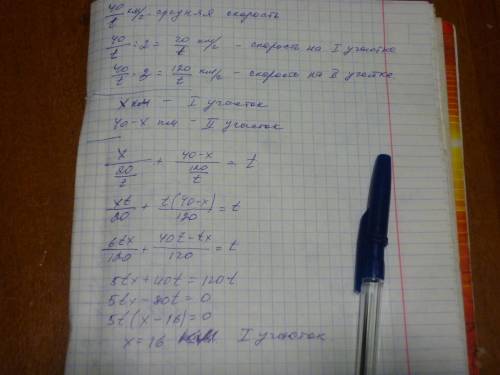 40/t км/ч - средняя скорость
40/t : 2 = 20/t км/ч - скорость на I участке
40/t · 3 = 120/t км/ч - скорость на II участке
x км - I участок
40-x км - II участок
x/(20/t) + (40-x)/(120/t) = t
xt/20 + t(40-x)/120 = t
6tx/120 + (40t-tx)/120 = t
5tx+40t = 120t
5tx-80t = 0
5t(x-16)=0
x=16 км I участок